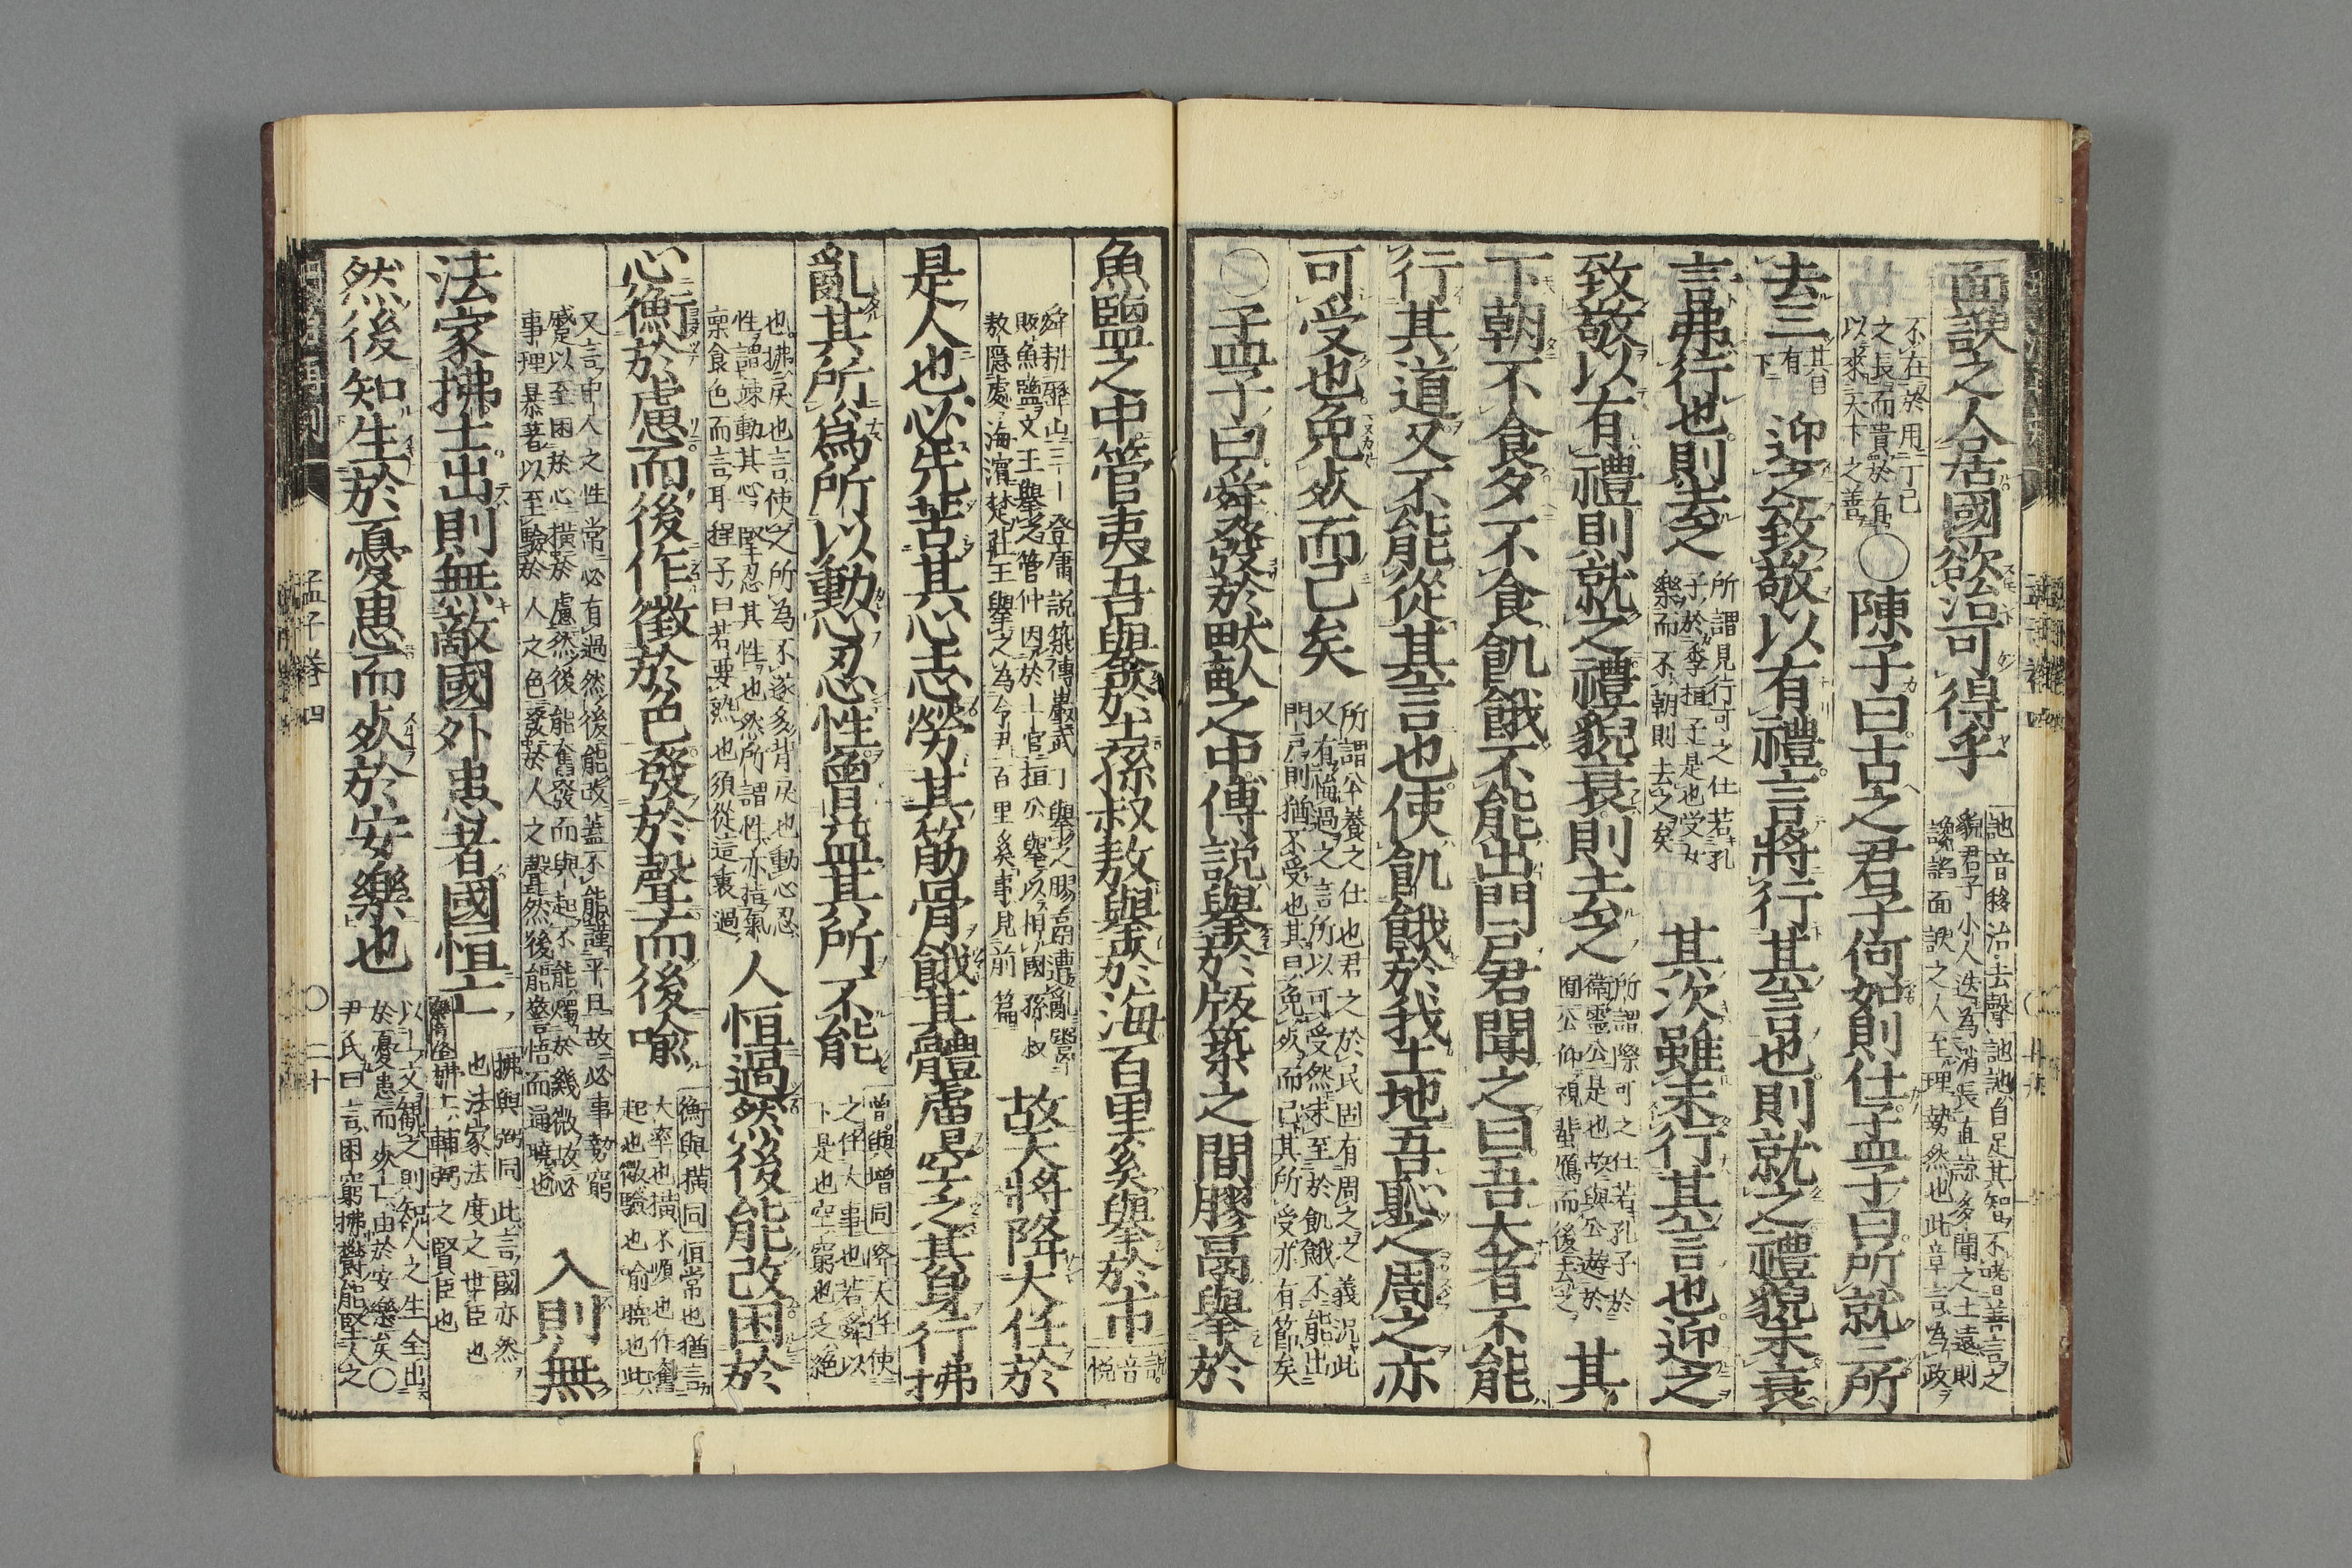 面諛之人居國欲治可得乎
訑音移治去聲訑訑自足其智不嗜善言之
貌君子小人迭為消長直諒多聞之士遠則
讒諂面諛之人至理勢然也此章言為政
不在於用一己
之長而貴於有
以來天下之善
○陳子曰古之君子何如則仕孟子曰所就三所
去三
其目
有
下
迎之致敬以有禮言將行其言也則就之禮貌未衰
言弗行也則去之
所謂見行可之仕若孔
子於季桓子是也受女
樂而不朝則去之矣
其次雖未行其言也迎之
致敬以有禮則就之禮貌衰則去之
所謂際可之仕若孔子於
衛靈公是也故與公遊於
囿公仰視蜚鴈而後去之
其
下朝不食夕不食飢餓不能出門戶君聞之曰吾大者不能
行其道又不能從其言也使飢餓於我土地吾恥之周之亦
可受也免死而已矣
所謂公養之仕也君之於民固有周之之義況此
又有悔過之言所以可受然未至於飢餓不能出
門戶則猶不受也其曰免死而已其所受亦有節矣
○孟子曰舜發於畎畝之中傅說舉於版築之間膠鬲舉於
魚鹽之中管夷吾舉於士孫叔敖舉於海百里奚舉於市
說
音
悅
舜耕歷山三十登庸說築傅巖武丁舉之膠鬲遭亂鬻
販魚鹽文王舉之管仲囚於士官桓公舉以相國孫叔
敖隱處海濱楚莊王舉之為令尹百里奚事見前篇
故天將降大任於
是人也必先苦其心志勞其筋骨餓其體膚空乏其身行拂
亂其所爲所以動心忍性曾益其所不能
曾與增同降大任使
之任大事也若舜以
下是也空窮也乏絕
也拂戾也言使之所為不遂多背戾也動心忍
性謂竦動其心堅忍其性也然所謂性亦指氣
稟食色而言耳程子曰若要熟也須從這裏過
人恒過然後能改困於
心衡於慮而後作徵於色發於聲而後喻
衡與橫同恒常也猶言
大率也橫不順也作奮
起也徵驗也喻曉也此
又言中人之性常必有過然後能改蓋不能謹平日故必事勢窮
蹙以至困於心橫於慮然後能奮發而興起不能燭於幾微故必
事理暴著以至驗於人之色發於人之聲然後能警悟而通曉也
入則無
法家拂士出則無敵國外患者國恒亡
拂與弼同此言國亦然
也法家法度之世臣也
拂士輔弼之賢臣也
然後知生於憂患而死於安樂也
樂音洛
以上文觀之則知人之生全出
於憂患而死亡由於安樂矣○
尹氏曰言困窮拂鬱能堅人之
孟子卷四
○二十